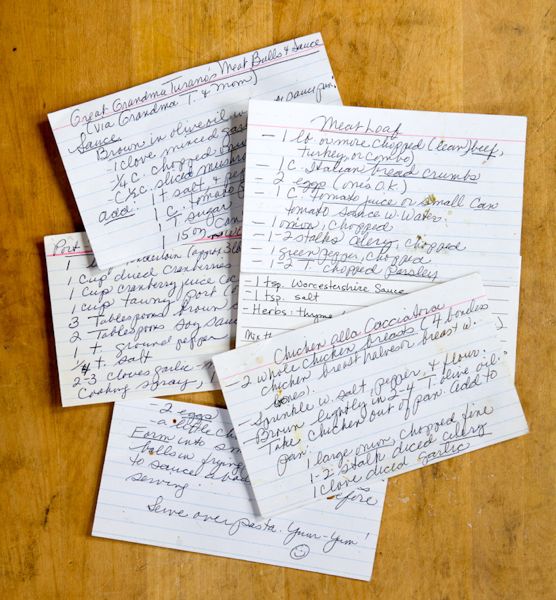 Great Grandma Turano's Meat Balls & Sauce
(via Grandma T. & Mom)
Sauce
Brown in olive oil
- 1 clove minced
- 1/4 C. chopped
- C. sliced
add: 1 t salt, & pe
1 C. tomato
1 T sugar
1 15 oz can
Meat Loaf
- 1 lb or more chopped (lean) beef,
turkey or combo)
- 1 C. Italian bread crumbs
- 2 eggs (one is O.K.)
- 1 C. tomato juice or small can
tomato sauce w. water
- 1 onion, chopped
- 1-2 stalks celery, chopped
- 1 green pepper, chopped
- 1-2 T chopped Parsley
- 1 tsp. Worcestershire Sauce
- 1 tsp. salt
- Herbs: thyme
Port
1 cup dried cranberries
1 cup cranberry juice
1 cup tawny Port
3 Tablespoons brown
2 Tablespoons soy sauc
1 t. ground pepper
1/4 t. salt
2-3 cloves garlic
Cooking spray,
Chicken alla Cacciatora
- 2 whole chicken breasts (4 boneless
chicken breast halves or breast w.
bones).
- Sprinkle w. salt, pepper, & flour.
- Brown lightly in 2-4 T olive oil.
Take chicken out of pan. Add to
pan:
1 large onion chopped fine
1-2 stalk diced celery
1 clove diced garlic
- 2 eggs
- a little ch
Form into sm
balls in frying
to sauce
serving.
Serve over pasta. Yum-Yum!